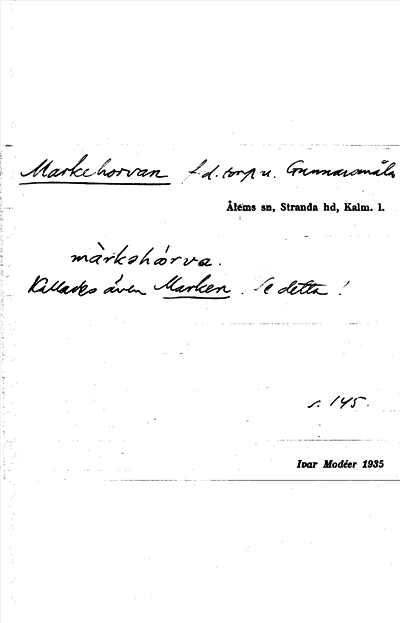 Markehorvan f.d. torp u. Gunnarsmåla
Ålems sn, Stranda hd, Kalm. l.
màrkshórva.
Kallades även Marken. Se detta!
s. 145.
Ivar Modéer 1935